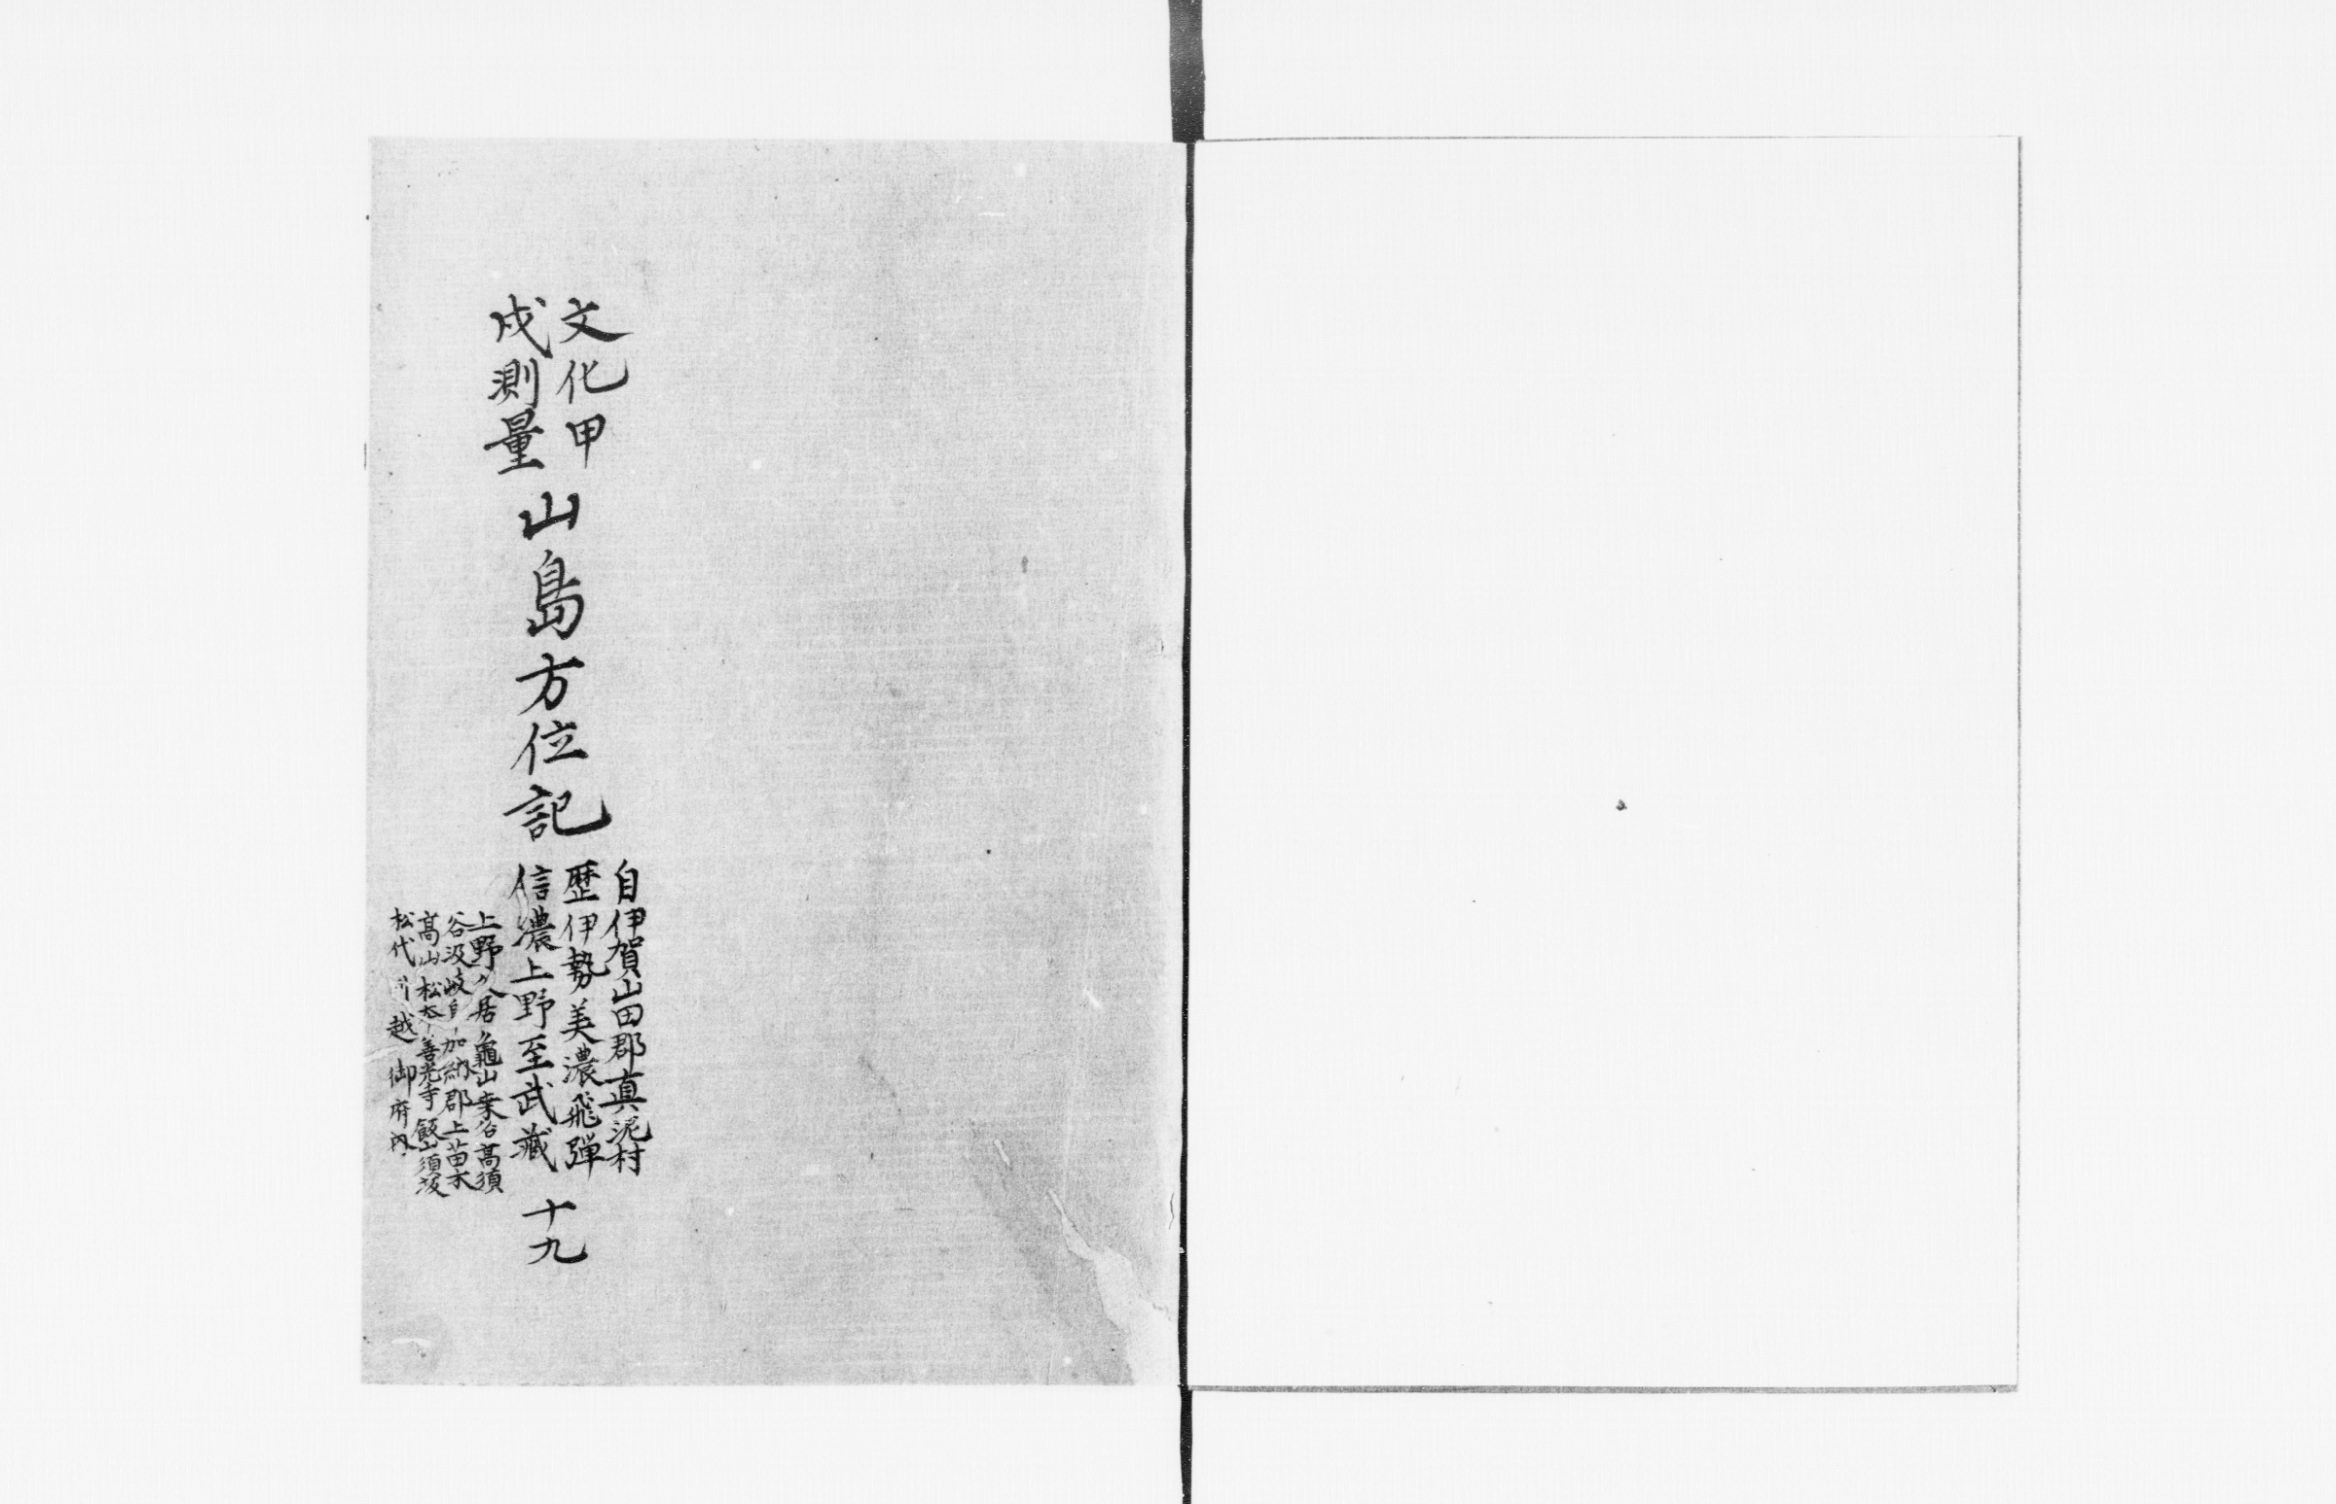 文化甲
戌測量
山島方位記
自伊賀山田郡真泥村
歴伊勢美濃飛弾
信濃上野至武蔵
十九
上野 久居 亀山 桑名 高須
谷汲 岐阜 加納 郡上 苗木
高山 松本 善光寺 飯山 須坂
松代 川越 御府内